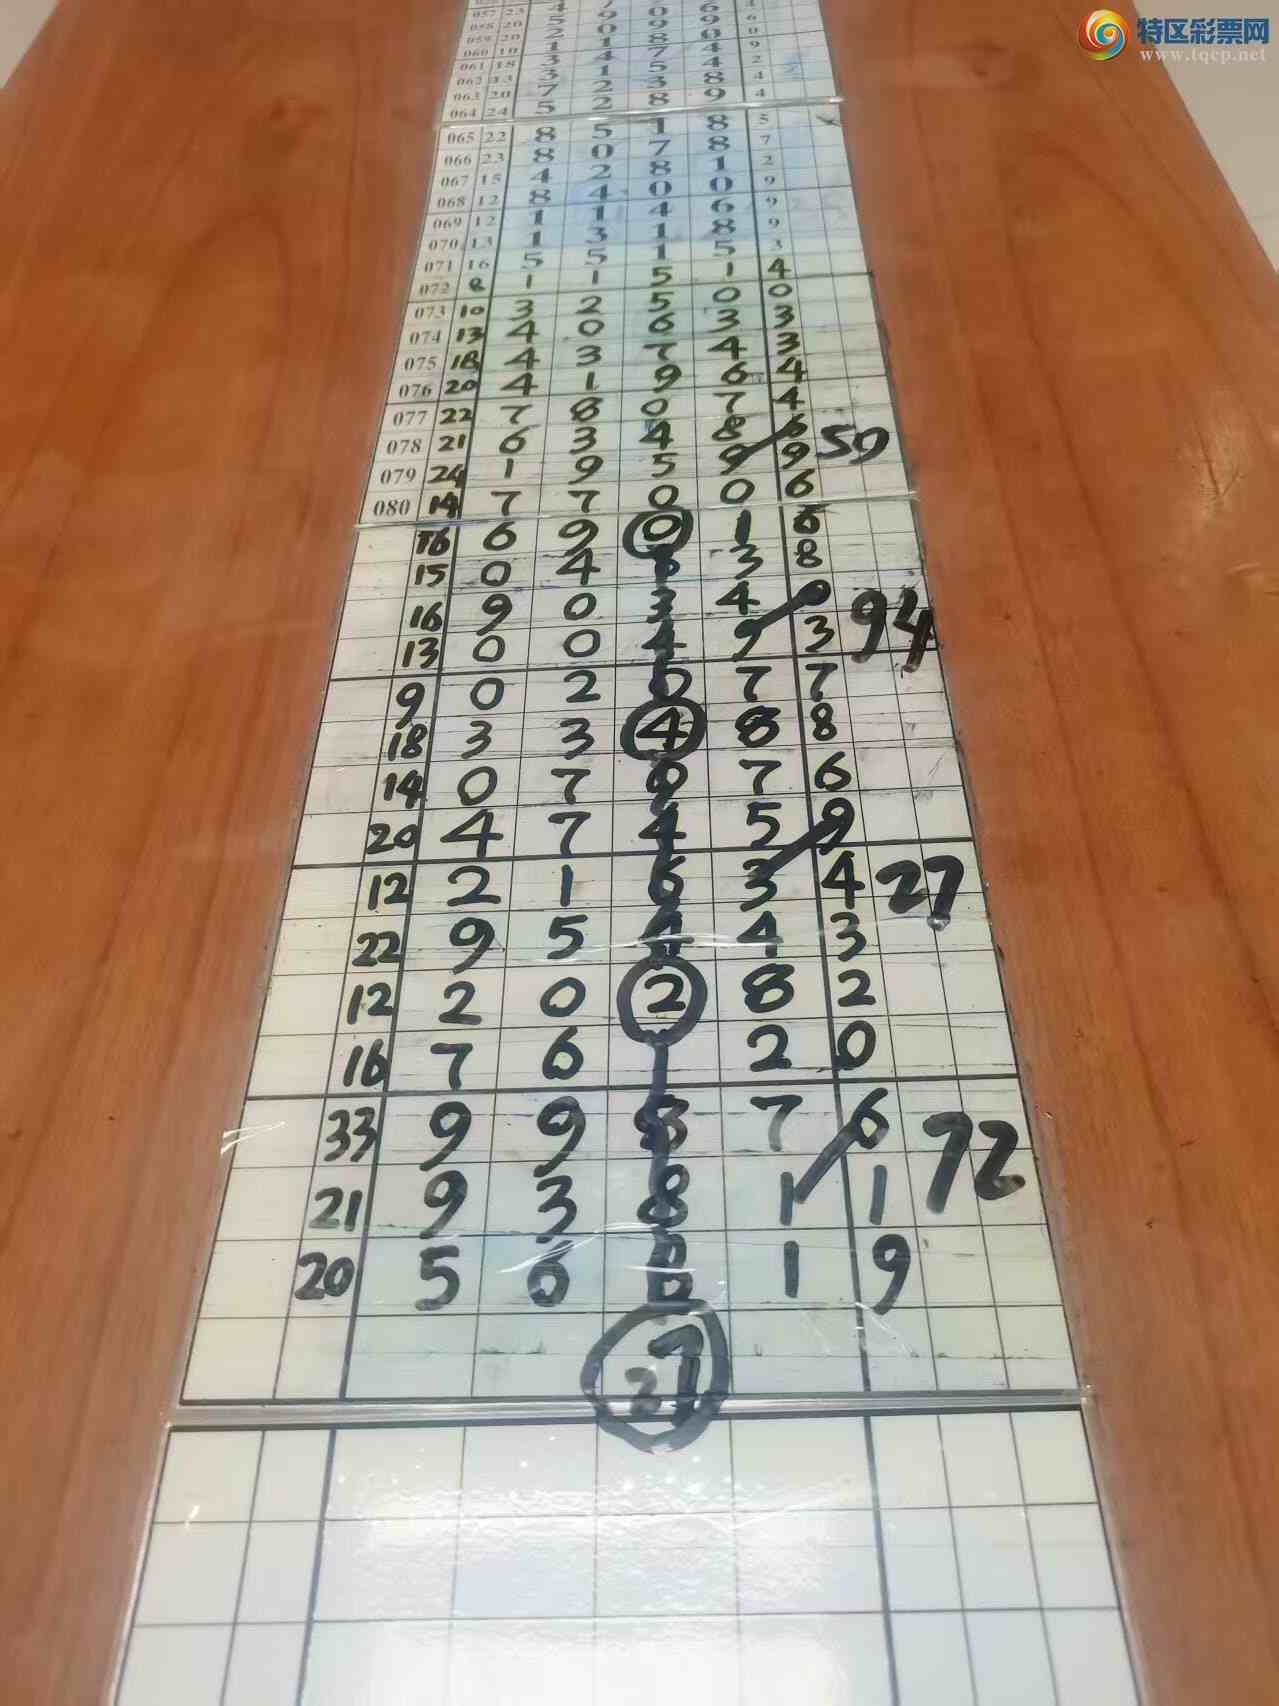 特区彩票网
www.tqcp.net
057 23 4 7 0 6 4
058 20 5 9 9 9 6
059 20 2 0 8 0 0
060 10 1 1 7 4 9
061 18 3 4 5 4 2
062 13 3 1 3 8 4
063 20 7 2 8 9 4
064 24 5 2
065 22 8 5 1 8 5
066 23 8 0 7 8 7
067 15 4 2 8 1 2
068 12 8 4 0 0 9
069 12 1 1 4 6 9
070 13 1 3 1 8 9
071 16 5 5 1 5 3
072 8 1 1 5 1 4
073 10 3 2 5 0 0
074 13 4 0 6 3 3
075 18 4 3 7 4 3
076 20 4 1 9 6 4
077 22 7 8 0 7 4
078 21 6 3 4 8 6 59
079 24 1 9 5 9 9
080 14 7 7 0 0 6
16 6 9 0 1 6
15 0 4 8 3 8
16 9 0 3 4 0
13 0 0 4 9 3 94
9 0 2 0 7 7
18 3 3 4 8 8
14 0 7 0 7 6
20 4 7 4 5 9
12 2 1 6 3 4 27
22 9 5 4 4 3
12 2 0 2 8 2
16 7 6 1 2 0
33 9 9 8 7 6
21 9 3 8 1 1 72
20 5 6 8 1 9
27